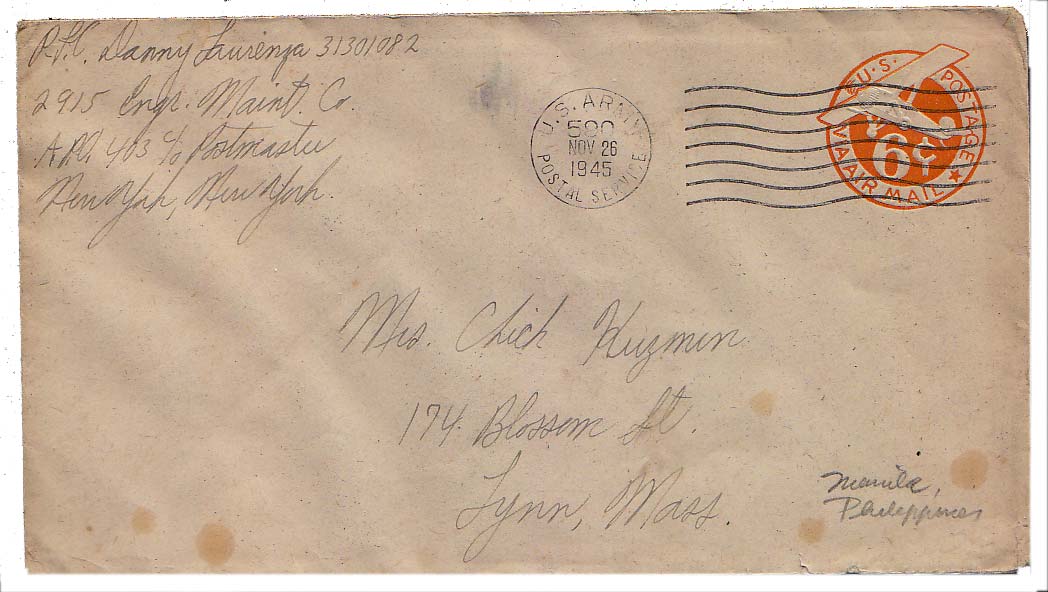 P.F.C. Danny Laurenza 31301082
2915 Engr. Maint. Co.
A.P.O. 403 c/o Postmaster
New York, New York.
U.S. ARMY
NOV 26
1945
POSTAL SERVICE
U.S. POSTAGE
6¢
VIA AIR MAIL
Mrs. Chick Kuzmin
174 Blossom St.
Lynn, Mass.
Manila,
Philippines